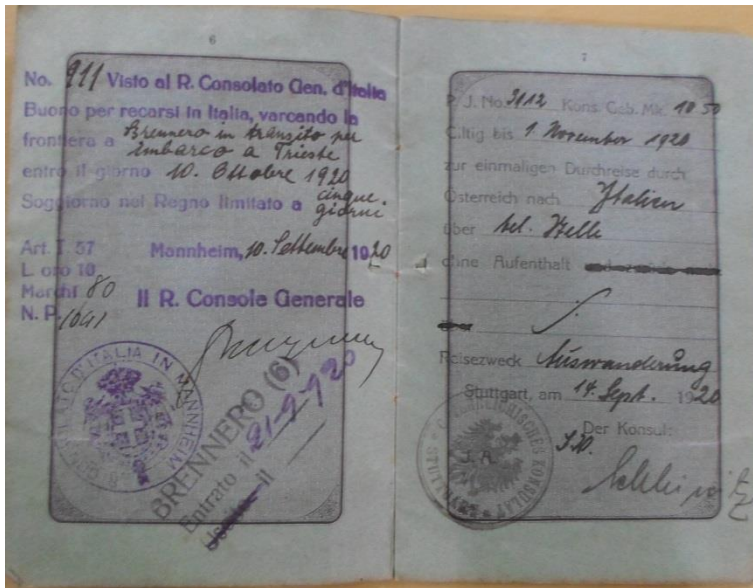 6
No. 911 Visto al R. Consolato Gen. d'Italia
Buono per recarsi in Italia, varcando la
frontiera a Brennero in transito per
imbarco a Trieste
entro il giorno 10. Ottobre 1920
Soggiorno nel Regno limitato a cinque
giorni
Art. T. 57
Mannheim, 10. Settembre 1920
L. oro 10
Marchi 80
Il R. Console Generale
N. P. 1641
CONSOLATO D'ITALIA IN MANNHEIM
BRENNERO (6)
Entrato il 21-9-920
Uscito il
7
P. J. No. 3112 Kons. Geb. Mk. 10 50
Giltig bis 1. November 1920
zur einmaligen Durchreise durch
Österreich nach Italien
über bel. Stelle
ohne Aufenthalt
Reisezweck Auswanderung
Stuttgart, am 14. Sept. 1920
Der Konsul:
J. A.
KONSULAT
STUTTGART